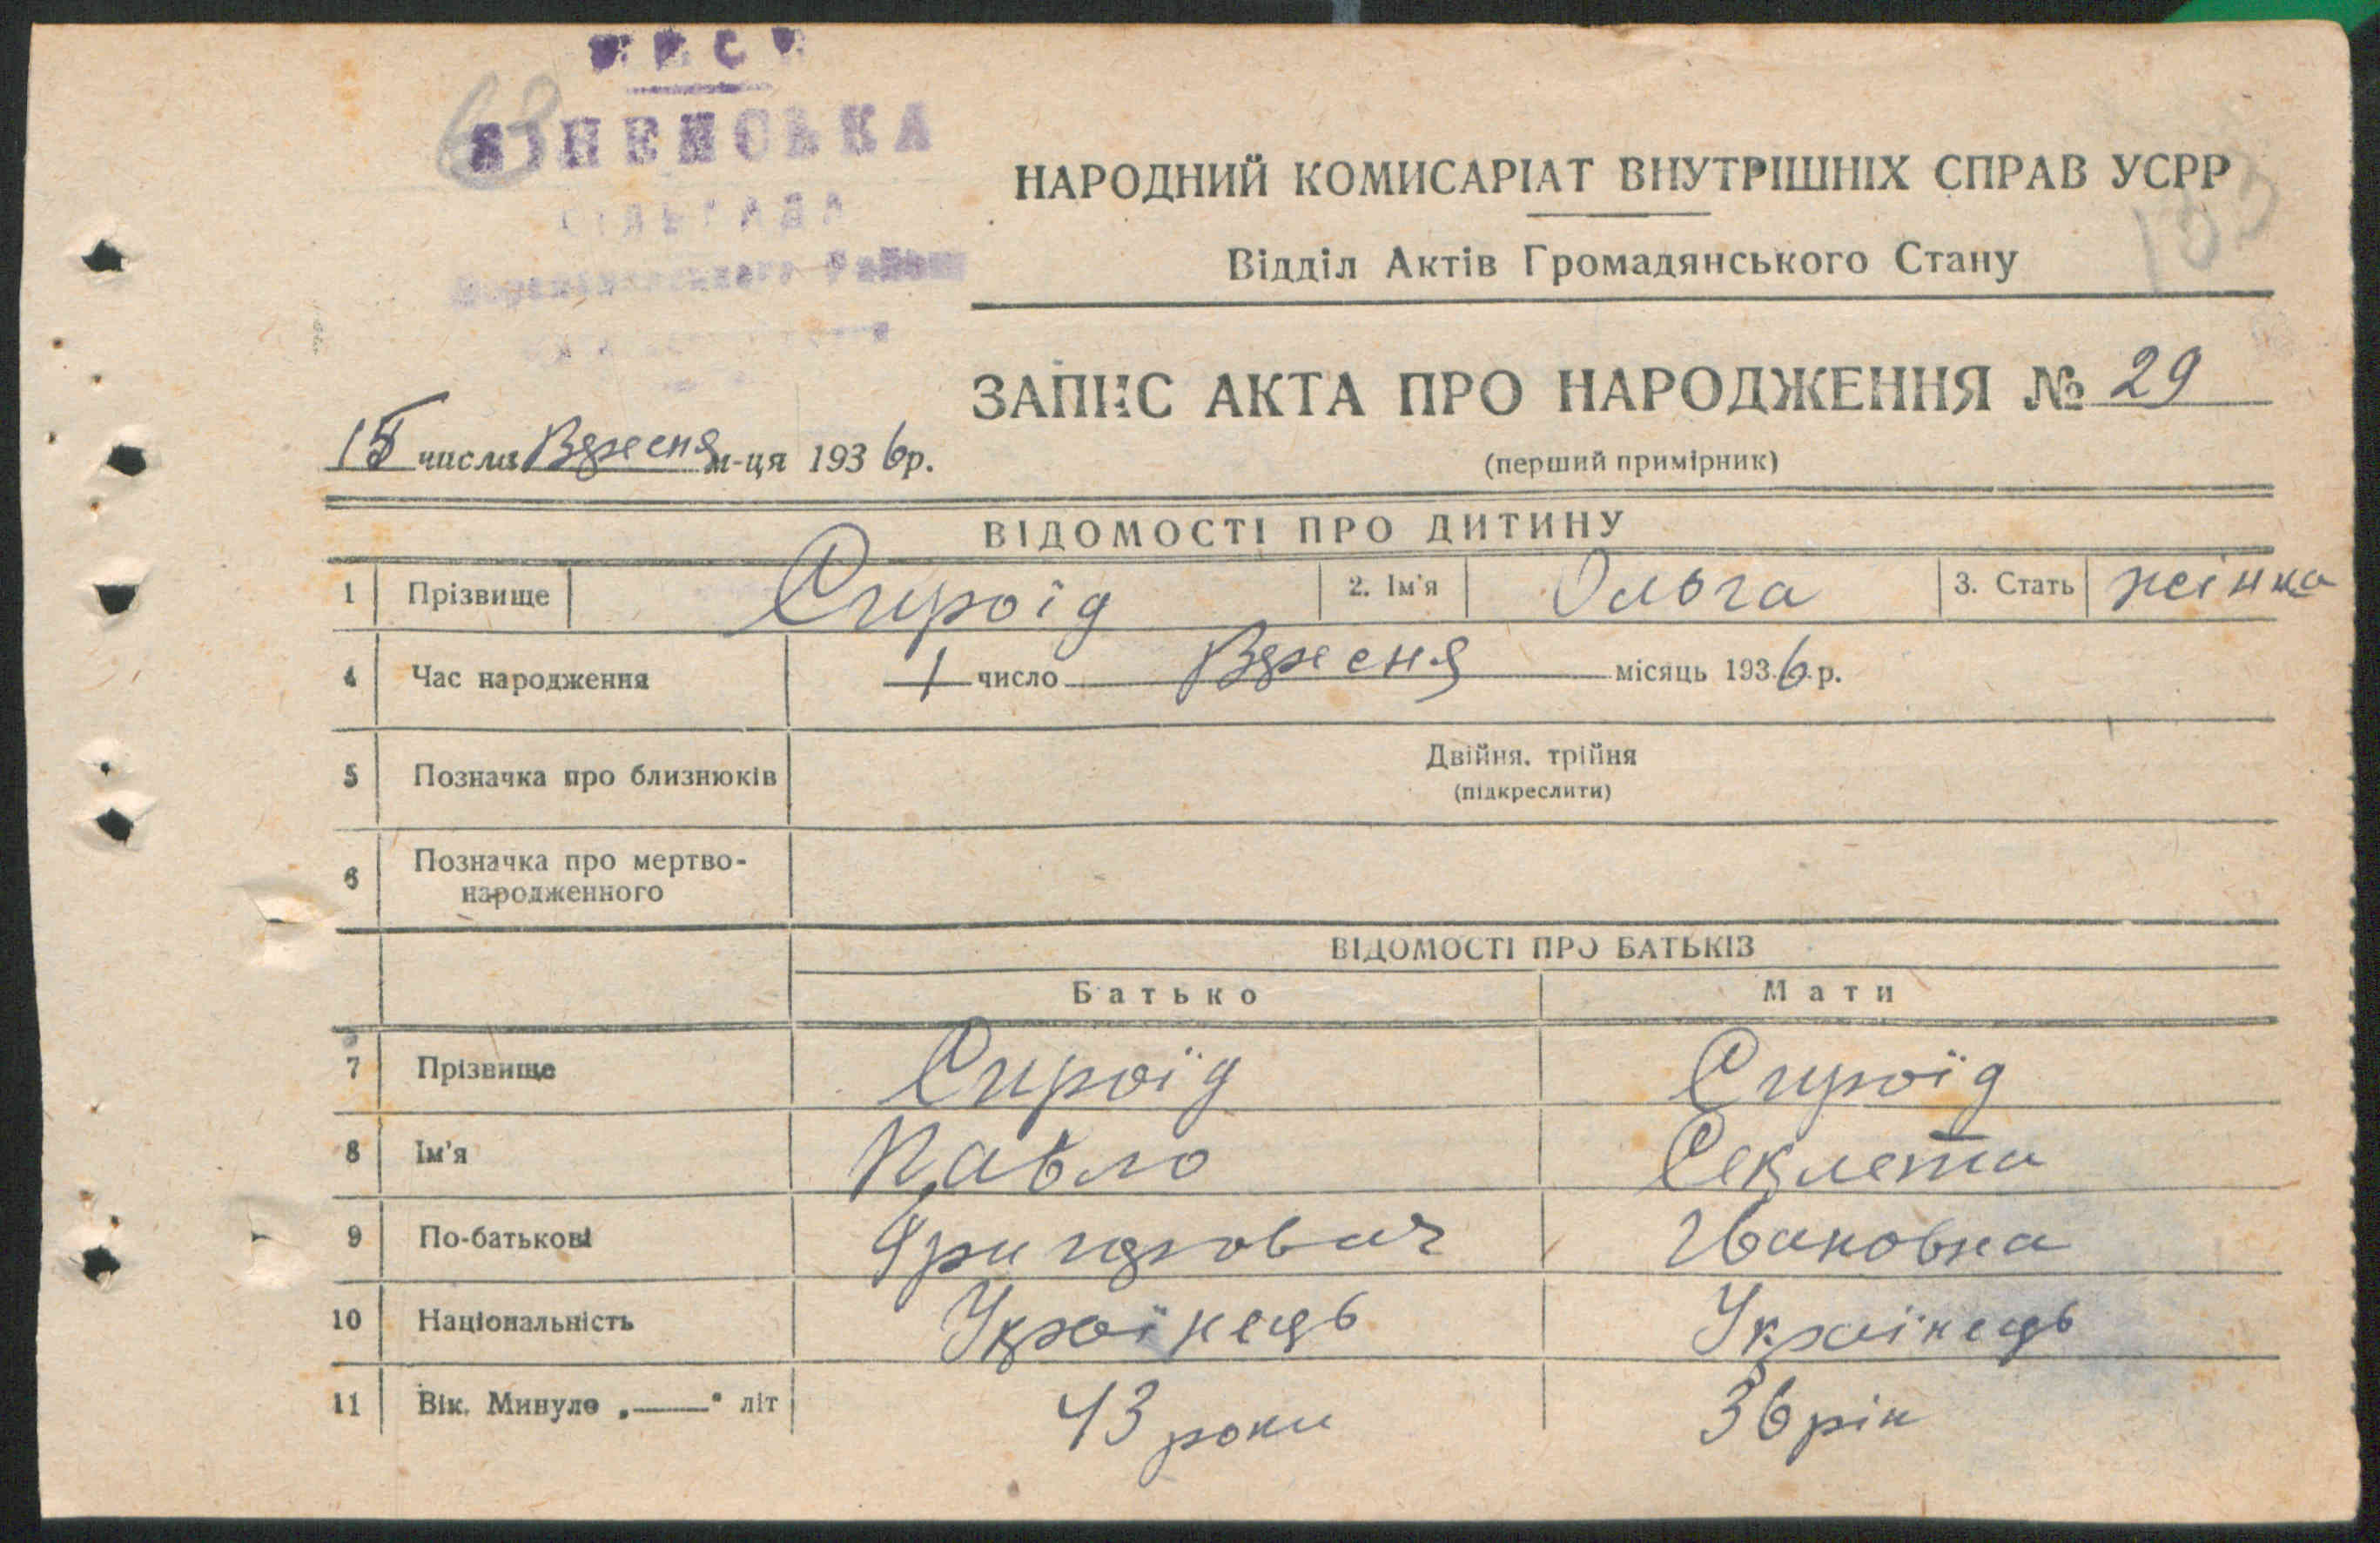 63
СІЛЬРАДА
Району
НАРОДНИЙ КОМИСАРІАТ ВНУТРІШНІХ СПРАВ УСРР
133
Відділ Актів Громадянського Стану
ЗАПИС АКТА ПРО НАРОДЖЕННЯ № 29
15 числа Вересня м-ця 1936 р.
(перший примірник)
ВІДОМОСТІ ПРО ДИТИНУ
1 Прізвище Сироїд 2. Ім'я Ольга 3. Стать жінка
4 Час народження 1 число Вересня місяць 1936 р.
5 Позначка про близнюків Двійня, трійня
(підкреслити)
6 Позначка про мертво-
народженного
ВІДОМОСТІ ПРО БАТЬКІВ
Батько Мати
7 Прізвище Сироїд Сироїд
8 Ім'я Павло Секлета
9 По-батькові Григорович Івановна
10 Національність Українець Українець
11 Вік. Минуло „——" літ 43 роки 36 рік